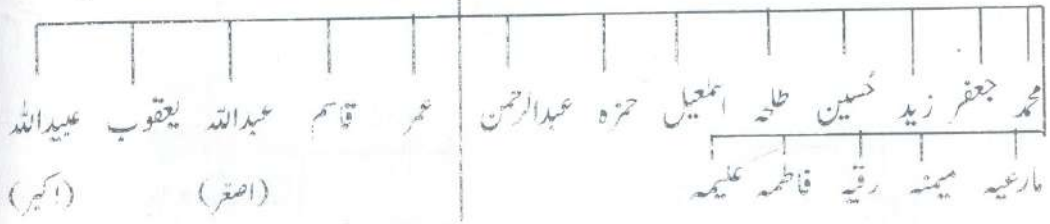 محمد جعفر زید حُسین طلحہ اسمٰعیل حمزہ عبدالرحمن عمر قاسم عبداللہ یعقوب عبیداللہ
مارعیہ میمنہ رقیہ فاطمہ علیمہ (اصغر) (اکبر)